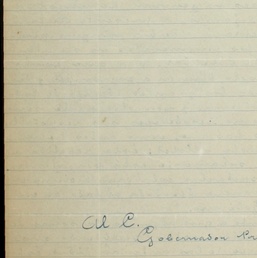 Al C.
Gobernador